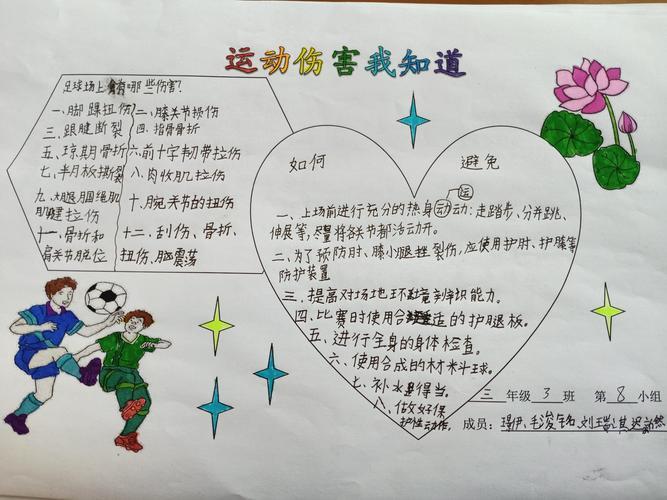 运动伤害我知道
足球场上有哪些伤害?
一、脚踝扭伤 二、膝关节损伤
三、跟腱断裂 四、指骨骨折
五、琼期骨折 六前十字韧带拉伤
七、半月板撕裂 八、肉收肌拉伤
九、大腿腘绳肌 十、腕关节的扭伤
肌腱拉伤
十一、骨折和 十二、刮伤、骨折、
肩关节脱位 扭伤、脑震荡
如何 避免
一、上场前进行充分的热身运动:走踏步、分并跳、
伸展等,尽量将各关节都活动开。
二、为了预防肘、膝小腿挫裂伤,应使用护肘、护膝等
防护装置
三、提高对场地环境判识能力。
四、比赛时使用合适的护腿板。
五、进行全身的身体检查。
六、使用合成的材料球。
七、补水量得当。
八、做好保
护性动作。
三年级3班 第8小组
成员: 伊、毛浚铭、刘